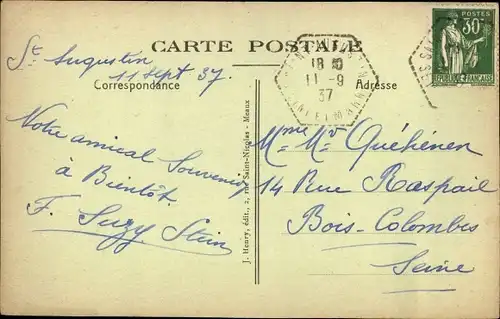 CARTE POSTALE
St Augustin
11 Sept 37.
Correspondance
Notre amical Souvenir
à Bientôt.
F. Suzy Stein
J. Henry, édit., 2, rue Saint-Nicolas - Meaux
18 10
11-9
37
SEINE ET MARNE
POSTES
30c
REPUBLIQUE FRANÇAISE
Adresse
Mme Mr Quéhénen
14 Rue Raspail
Bois-Colombes
Seine